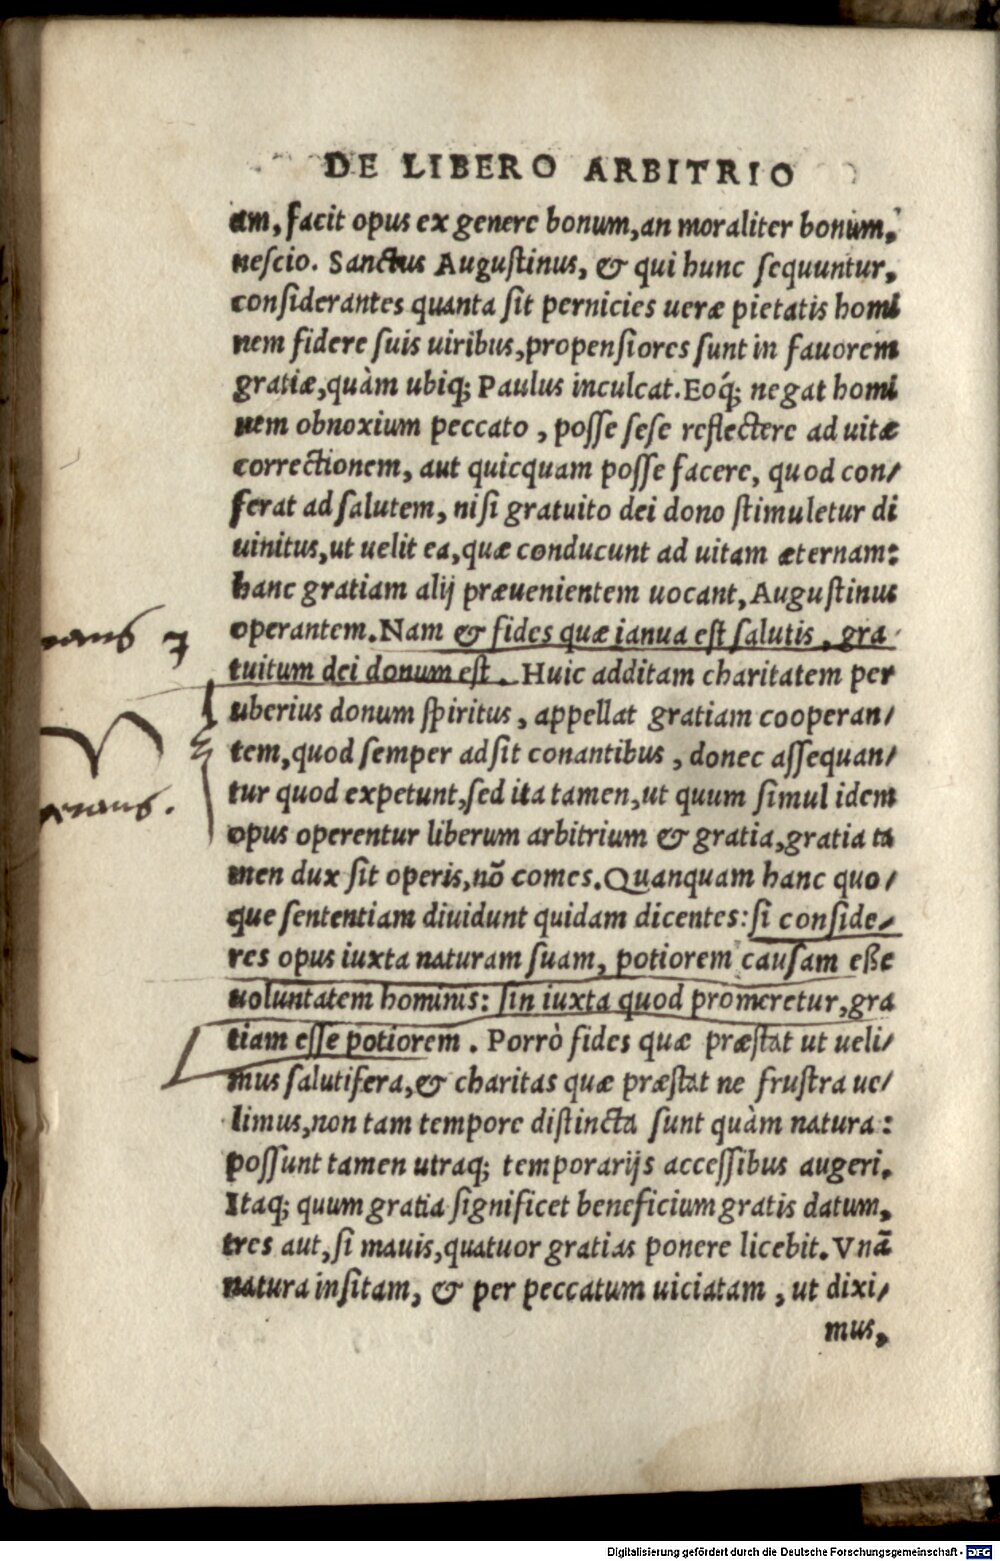 DE LIBERO ARBITRIO
am, facit opus ex genere bonum, an moraliter bonum,
nescio. Sanctus Augustinus, & qui hunc sequuntur,
considerantes quanta sit pernicies ueræ pietatis homi
nem fidere suis uiribus, propensiores sunt in fauorem
gratiæ, quàm ubiq; Paulus inculcat. Eoq́; negat homi
nem obnoxium peccato, posse sese reflectere ad uitæ
correctionem, aut quicquam posse facere, quod con/
ferat ad salutem, nisi gratuito dei dono stimuletur di
uinitus, ut uelit ea, quæ conducunt ad uitam æternam:
hanc gratiam alij præuenientem uocant, Augustinus
operantem. Nam & fides quæ ianua est salutis, gra
tuitum dei donum est. Huic additam charitatem per
uberius donum spiritus, appellat gratiam cooperan/
tem, quod semper adsit conantibus, donec assequan/
tur quod expetunt, sed ita tamen, ut quum simul idem
opus operentur liberum arbitrium & gratia, gratia ta
men dux sit operis, nõ comes. Quanquam hanc quo/
que sententiam diuidunt quidam dicentes: si conside/
res opus iuxta naturam suam, potiorem causam eße
uoluntatem hominis: sin iuxta quod promeretur, gra
tiam esse potiorem. Porrò fides quæ præstat ut ueli/
mus salutifera, & charitas quæ præstat ne frustra ue/
limus, non tam tempore distincta sunt quàm natura:
possunt tamen utraq; temporarijs accessibus augeri.
Itaq; quum gratia significet beneficium gratis datum,
tres aut, si mauis, quatuor gratias ponere licebit. Vnã
natura insitam, & per peccatum uiciatam, ut dixi/
mus,
Digitalisierung gefördert durch die Deutsche Forschungsgemeinschaft - DFG